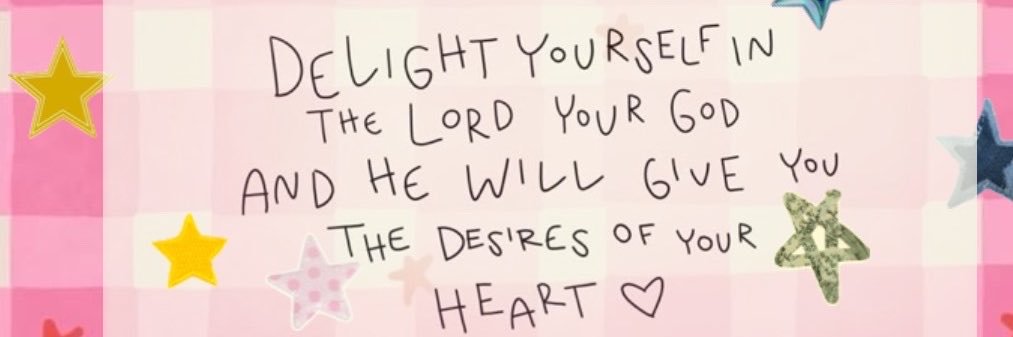 DELIGHT YOURSELF IN
THE LORD YOUR GOD
AND HE WILL GIVE YOU
THE DESIRES OF YOUR
HEART